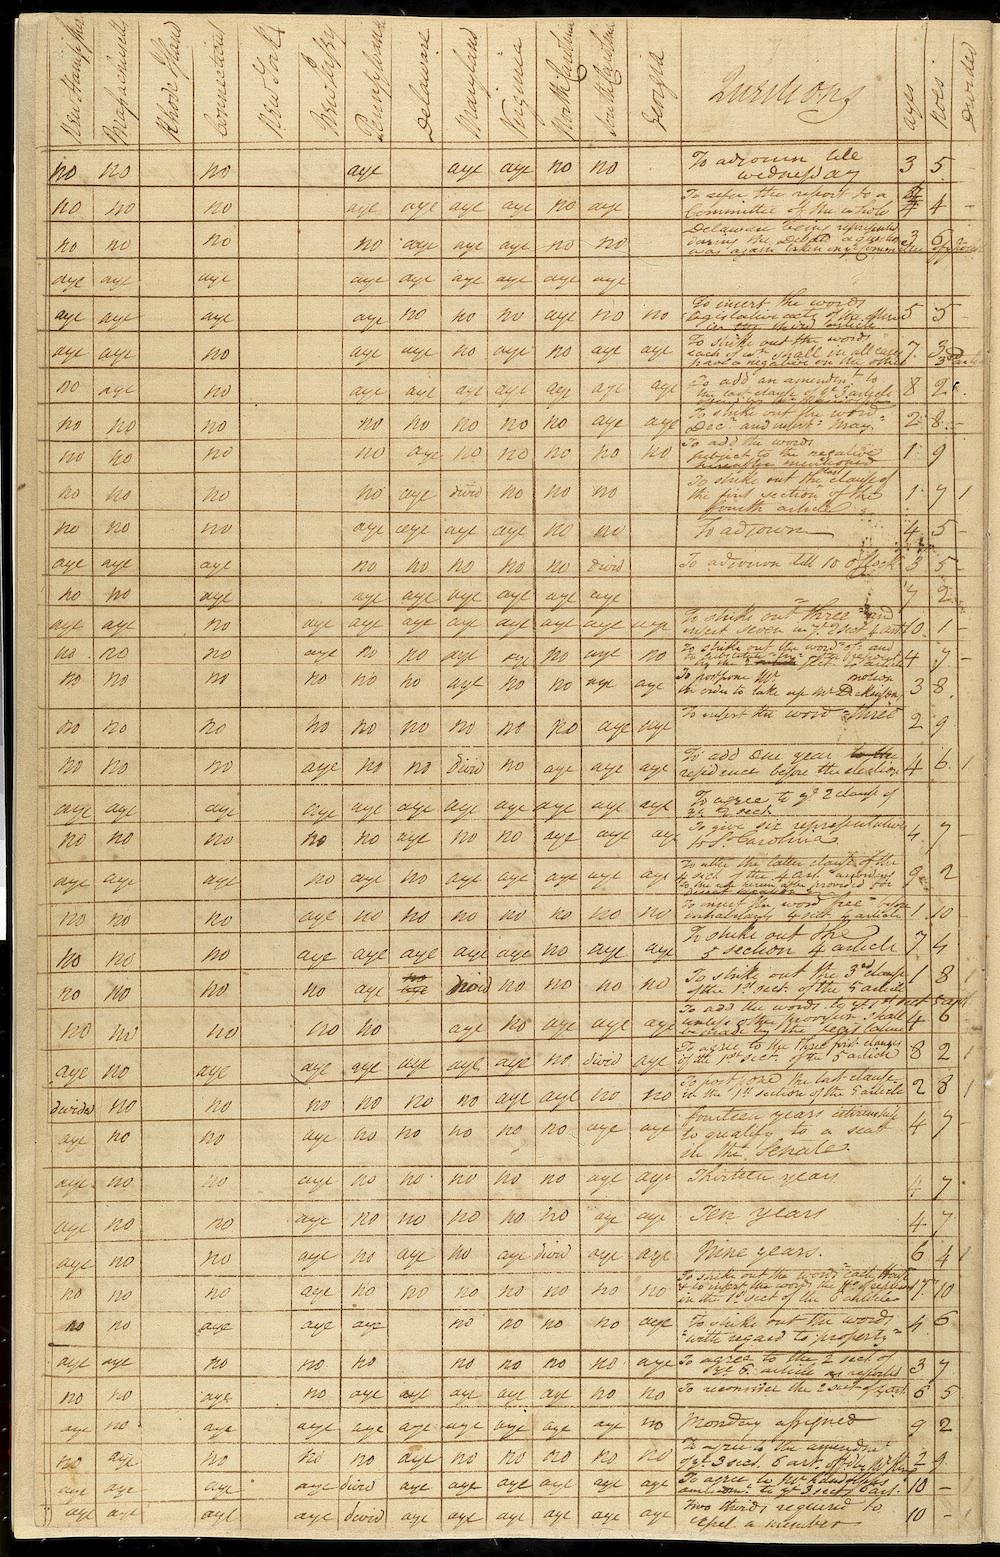 New Hampshire Massachusetts Rhode Island Connecticut New York New Jersey Pennsylvania Delaware Maryland Virginia North Carolina South Carolina Georgia Questions ayes Noes Divided
no no no aye aye aye no no To adjourn till wednesday 3 5
no no no aye aye aye aye no aye To refer the report to a Committee of the whole 4 –
no no no no aye aye aye no no Delaware being represented during the Debate a question was again taken on ye Committee of ye whole 3 6
aye aye aye aye aye aye aye aye aye
aye aye aye aye no no no aye no no To insert the words legislative acts 5 5 –
aye aye no aye aye no aye no aye aye To strike out the words each of wch shall in all cases have a negative on the other 7. 3
no aye no aye aye aye aye aye aye aye To add an amendmt to 8 2
no no no no no no no no aye aye To strike out the word Decr and insert May. 2 8 –
no no no no aye no no no no no To add the words subject to the negative hereafter mentioned 1 9
no no no no aye divid no no no To strike out the last clause of the first section of the fourth article 1 7 1
no no no aye aye aye aye no no To adjourn 4 5 –
aye aye aye no no no no no divid To adjourn till 10 o'Clock 3 5 –
no no aye aye aye aye aye aye aye 7 2
aye aye no aye aye aye aye aye aye aye aye To strike out three and insert seven in ye 2d sect 4 art 10. 1 –
no no no aye no no aye aye no aye no To strike out the word 4 7 –
no no no no no no aye no no aye aye To postpone Mr motion in order to take up Mr Dickinson 3 8.
no no no no no no no no no aye aye To insert the word three 2 9
no no no aye no no divid no aye aye aye To add one year residence before the election 4 6. 1
aye aye aye aye aye aye aye aye aye aye aye To agree to ye 2 clause of
no no no no no aye no no aye aye aye To give six representatives to So Carolina 4 7 –
aye aye aye no aye no aye aye aye aye aye To alter the latter clause of the 4 sect of the 4 art 9 2
no no no aye no no no no no no no To insert the word free before inhabitants 4 sect 4 article 1 10 –
no no no aye aye aye aye aye no aye aye To strike out the 5 section 4 article 7 4
no no no no aye no divid no no no no To strike out the 3rd clause of the 1st sect. of the 5 article 1 8 1
no no no no no aye no aye aye aye To add the words to ye 1st sect 5 art unless other provision shall be made by the legislature 4 6
aye no aye aye aye aye aye aye no divid aye To agree to the three first clauses of the 1st sect. of the 5 article 8 2 1
divided no no no no no no aye aye no no To postpone the last clause in the 1st section of the 5 article 2 8 1
aye no no aye no no no no no aye aye fourteen years citizenship to qualify to a seat in the Senate. 4 7 –
aye no no aye no no no no no aye aye Thirteen years 4 7
aye no no aye no no no no no aye aye Ten years 4 7
aye no no aye no aye no aye divid aye aye Nine years. 6 4 1
no no no aye no no no no no no no To strike out the word each House & to insert the words the 1. 10
no no aye aye aye no no no no aye To strike out the words "with regard to property" 4 6
aye aye no no no no no no no aye To agree to the 2 sect of ye 6 article as reported 3 7
no no aye no aye aye aye aye aye no no To reconsider the 2 sect of 4 art 6 5
aye no aye aye aye aye aye aye aye aye no Monday assigned 9 2
no aye no no no aye no no no no no To agree to the amendmt of ye 3 sect. 6 art. 2 9
aye aye aye aye divid aye aye aye aye aye aye To agree to Mr Randolph's amendmt to ye 3 sect 6 art. 10 –
aye aye aye aye divid aye aye aye aye aye aye two thirds required to expel a member 10 –